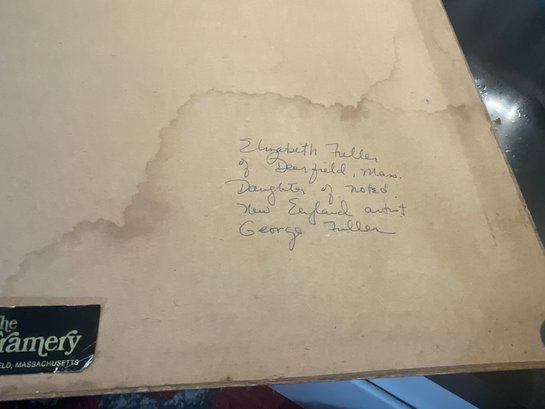 Elizabeth Fuller
of Deerfield, Mass.
Daughter of noted
New England artist
George Fuller
The
Framery
FIELD, MASSACHUSETTS